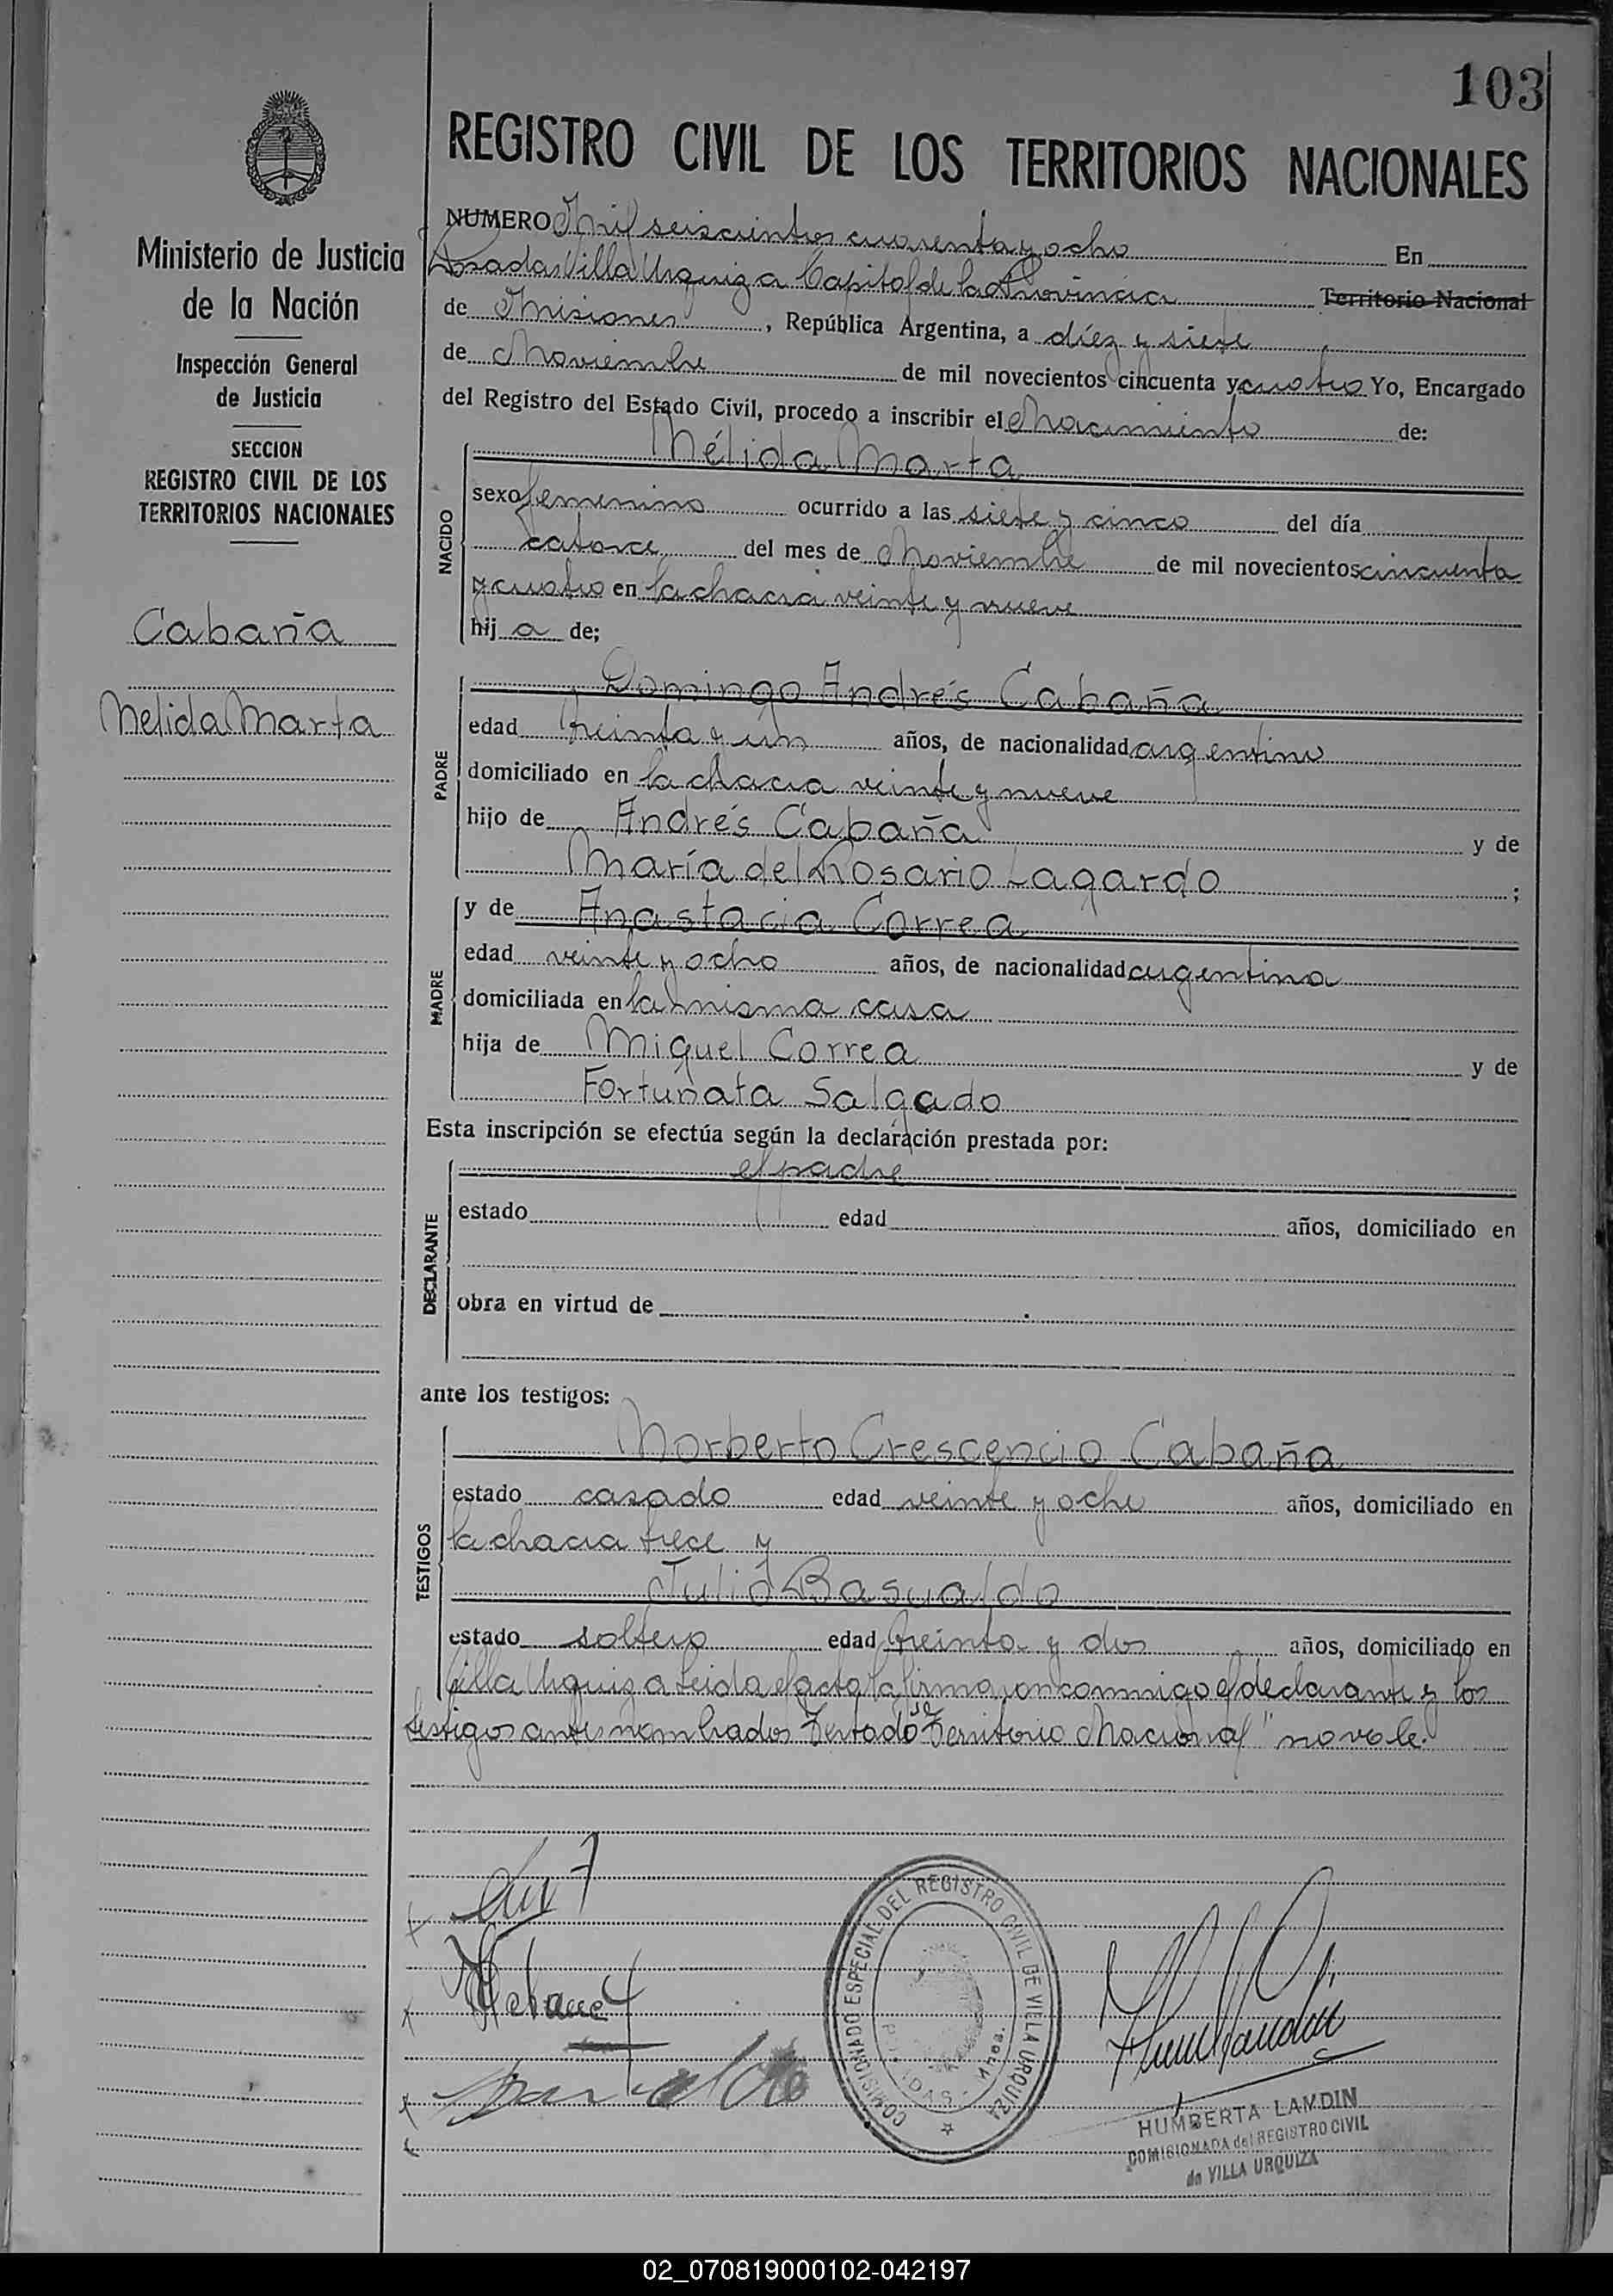 103
REGISTRO CIVIL DE LOS TERRITORIOS NACIONALES
Ministerio de Justicia
de la Nación
Inspección General
de Justicia
SECCION
REGISTRO CIVIL DE LOS
TERRITORIOS NACIONALES
Cabaña
Nélida Marta
NUMERO Mil seiscientos cuarenta y ocho En
Posadas Villa Urquiza Capital de la Provincia Territorio Nacional
de Misiones, República Argentina, a diez y siete
de Noviembre de mil novecientos cincuenta y cuatro Yo, Encargado
del Registro del Estado Civil, procedo a inscribir el Nacimiento de:
NACIDO
Nélida Marta
sexo femenino ocurrido a las siete y cinco del día
catorce del mes de Noviembre de mil novecientos cincuenta
y cuatro en la chacra veinte y nueve
hija de;
PADRE
Domingo Andrés Cabaña
edad treinta y un años, de nacionalidad argentino
domiciliado en la chacra veinte y nueve
hijo de Andrés Cabaña y de
María del Rosario Lagardo ;
MADRE
y de Anastacia Correa
edad veinte y ocho años, de nacionalidad argentina
domiciliada en la misma casa
hija de Miguel Correa y de
Fortunata Salgado
Esta inscripción se efectúa según la declaración prestada por:
DECLARANTE
el padre
estado edad años, domiciliado en
obra en virtud de
ante los testigos:
TESTIGOS
Norberto Crescencio Cabaña
estado casado edad veinte y ocho años, domiciliado en
la chacra trece y
Julio Basualdo
estado soltero edad treinta y dos años, domiciliado en
Villa Urquiza Leida el acta la firma con conmigo el declarante y los
testigos antes nombrados Testado "Territorio Nacional" no vale.
COMISIONADO ESPECIAL DEL REGISTRO CIVIL DE VILLA URQUIZA
POSADAS - Mnes.
HUMBERTA LAMDIN
COMISIONADA del REGISTRO CIVIL
de VILLA URQUIZA
02_070819000102-042197